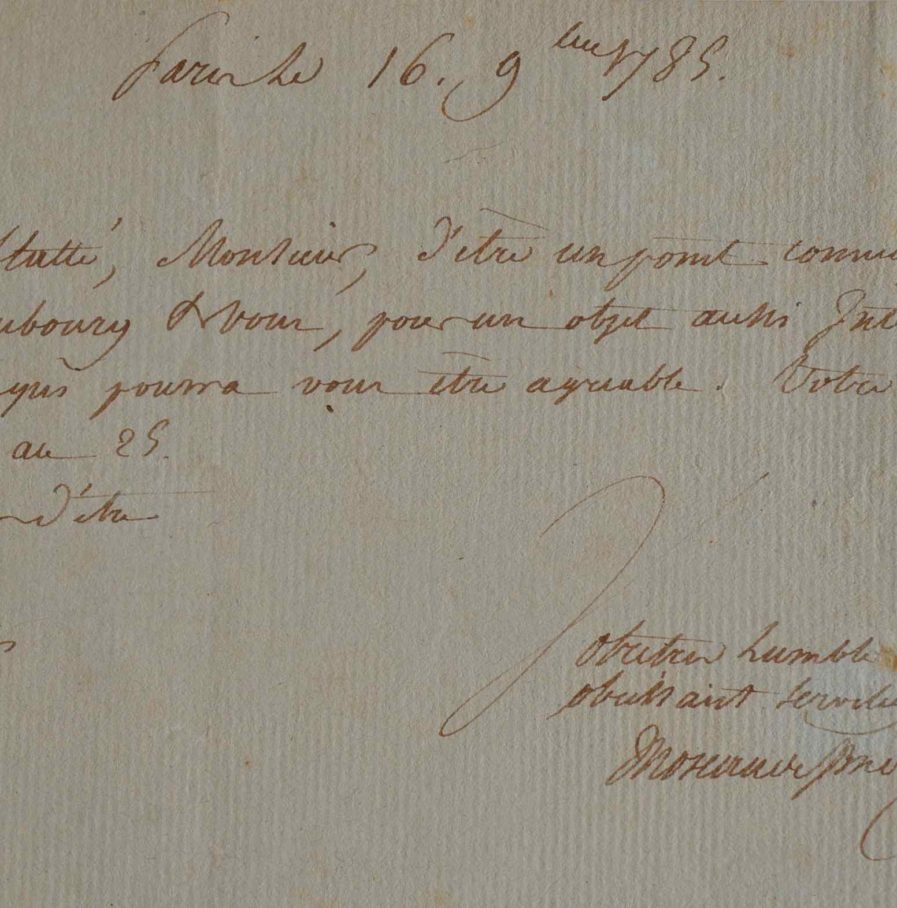 Paris Le 16. 9bre 1785.
flatté, Monsieur, d'être un point
ubourg & vous, pour un objet aussi
qui pourra vous être agreable. Votre
au 25.
d'être
Votre tres humble
obeissant